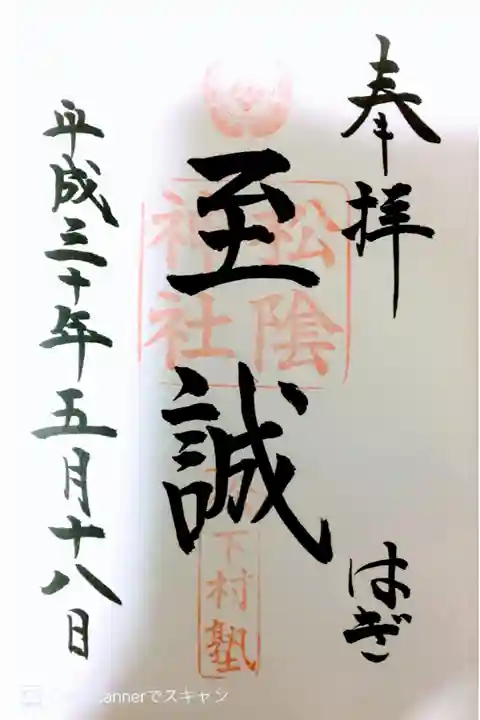 奉拝
はぎ
至誠
松陰
神社
松下村塾
平成三十年五月十八日
scannerでスキャン